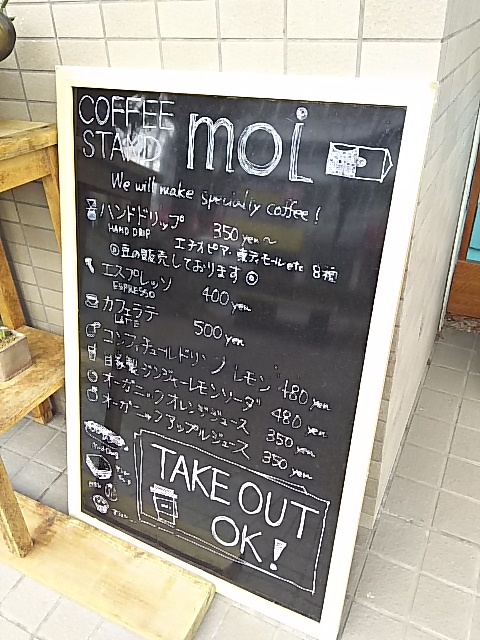 COFFEE STAND moi
We will make specialty coffee!
ハンドドリップ 350yen〜
HAND DRIP エチオピア・東ティモールetc 8種
豆の販売しております
エスプレッソ 400yen
ESPRESSO
カフェラテ 500yen
LATTE
コンフィチュールドリンク レモン 480yen
自家製ジンジャーレモンソーダ 480yen
オーガニックオレンジジュース 350yen
オーガニックアップルジュース 350yen
TAKE OUT
OK!